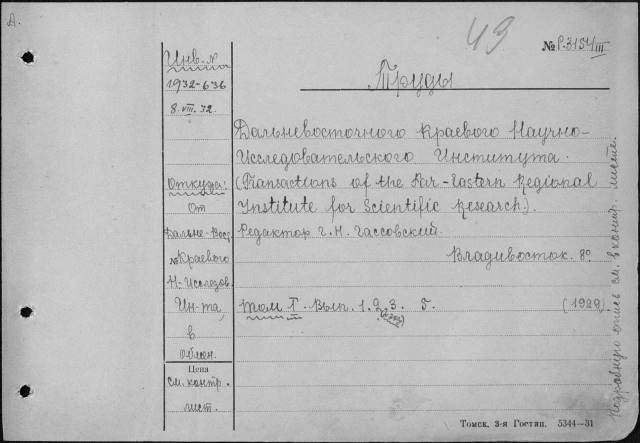 А.
43
№ Р.3154/III
Инв. №
1932-636
8.VIII.32.
Труды
Дальневосточного Краевого Научно-
Исследовательского Института.
(Transactions of the Far-Eastern Regional
Institute for Scientific Research).
Редактор Г.Н. Гассовский.
Владивосток. 8°
Том I. Вып. 1. 2, 3. 5. (1929)
Откуда:
От
Дальне-Вост.
Краевого
Н-Исследов.
Ин-та,
в
обмен.
Цена
см. контр.
лист.
Подробную опись см. в контр. листе.
Томск, 3-я Гостип. 5344—31